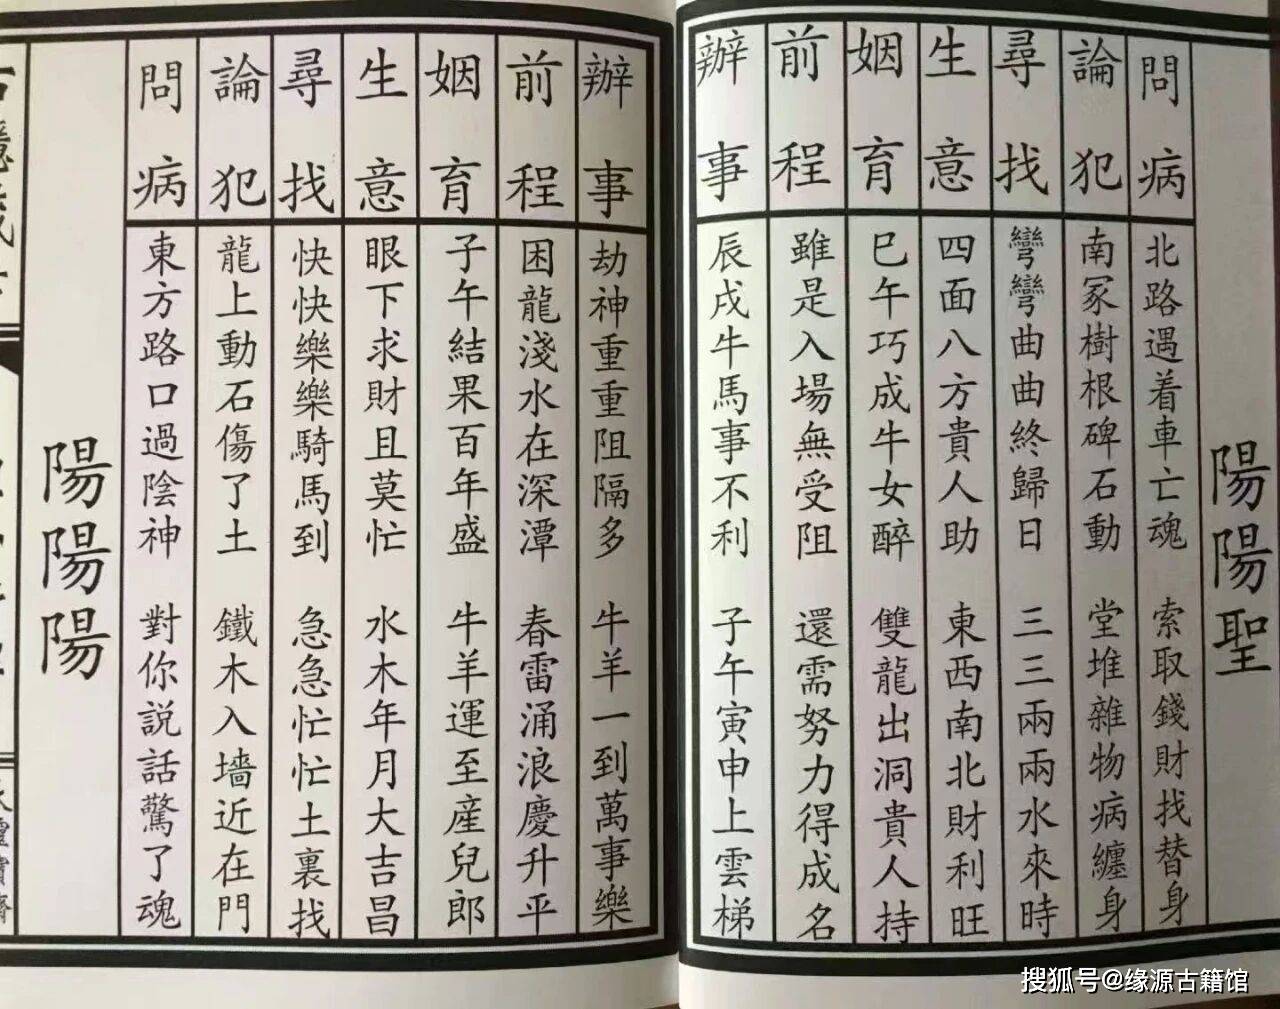 陽陽聖
問病 北路遇着車亡魂 索取錢財找替身
論犯 南冢樹根碑石動 堂堆雜物病纏身
尋找 彎彎曲曲終歸日 三三兩兩水來時
生意 四面八方貴人助 東西南北財利旺
姻育 巳午巧成牛女醉 雙龍出洞貴人持
前程 雖是入場無受阻 還需努力得成名
辦事 辰戌牛馬事不利 子午寅申上雲梯
辦事 劫神重重阻隔多 牛羊一到萬事樂
前程 困龍淺水在深潭 春雷涌浪慶升平
姻育 子午結果百年盛 牛羊運至産兒郎
生意 眼下求財且莫忙 水木年月大吉昌
尋找 快快樂樂騎馬到 急急忙忙土裏找
論犯 龍上動石傷了土 鐵木入墻近在門
問病 東方路口過陰神 對你説話驚了魂
陽陽陽
搜狐号@缘源古籍馆